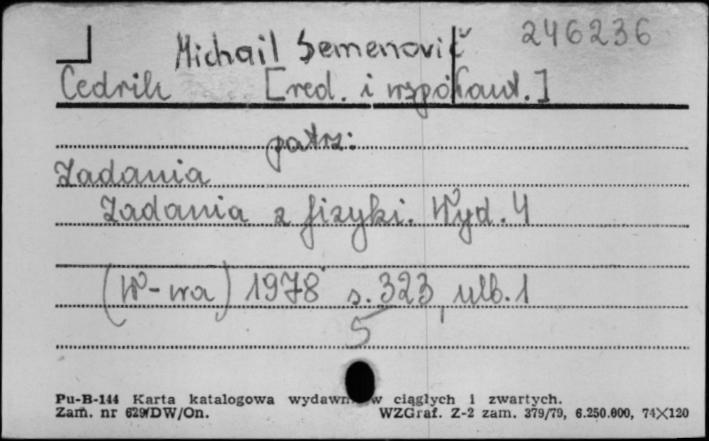 246236
Michail Semenovič
Cedrik [red. i współaut.]
patrz:
Zadania
Zadania z fizyki. Wyd. 4
(W-wa) 1978 s. 323, ulb. 1
5
Pu-B-144 Karta katalogowa wydawn w ciągłych i zwartych.
Zam. nr 629/DW/On. WZGraf. Z-2 zam. 379/79, 6.250.000, 74X120